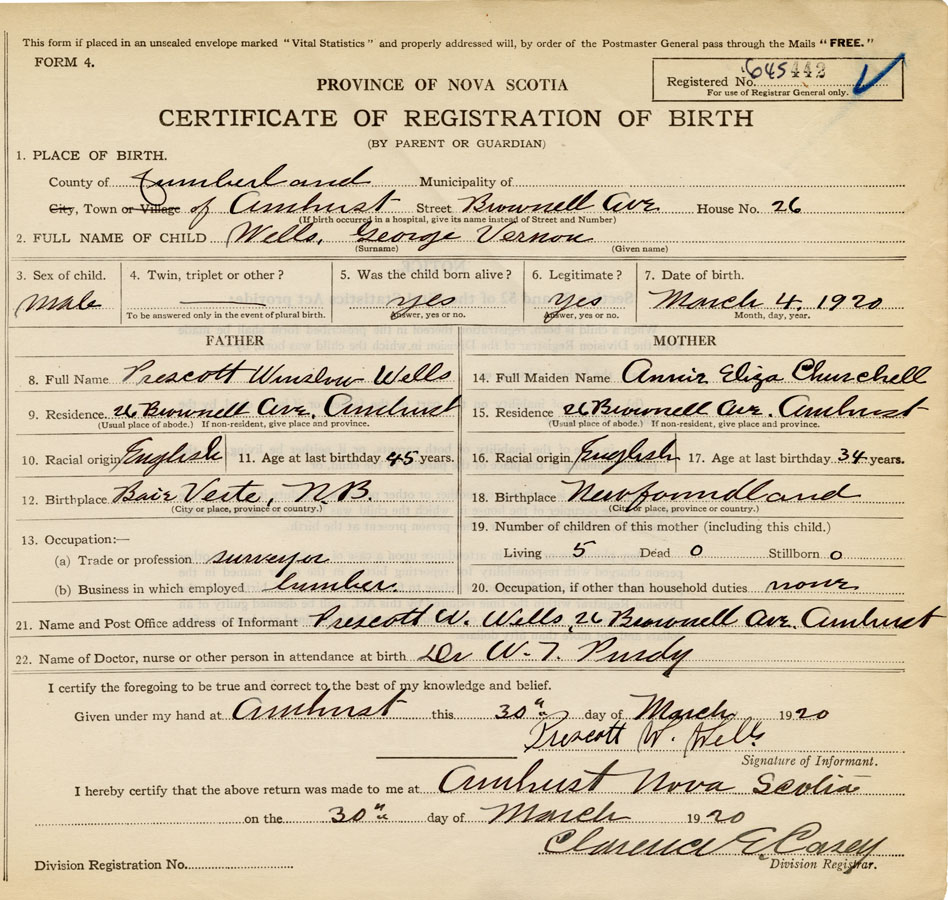 This form if placed in an unsealed envelope marked "Vital Statistics" and properly addressed will, by order of the Postmaster General pass through the Mails "FREE."
FORM 4.
Registered No. 645442
For use of Registrar General only.
PROVINCE OF NOVA SCOTIA
CERTIFICATE OF REGISTRATION OF BIRTH
(BY PARENT OR GUARDIAN)
1. PLACE OF BIRTH.
County of Cumberland Municipality of
City, Town or Village of Amhurst Street Brownell Ave House No. 26
(If birth occurred in a hospital, give its name instead of Street and Number)
2. FULL NAME OF CHILD Wells, George Vernon
(Surname) (Given name)
3. Sex of child. 4. Twin, triplet or other? 5. Was the child born alive? 6. Legitimate? 7. Date of birth.
male yes yes March 4, 1920
To be answered only in the event of plural birth. Answer, yes or no. Answer, yes or no. Month, day, year.
FATHER MOTHER
8. Full Name Prescott Winslow Wells 14. Full Maiden Name Annie Eliza Churchell
9. Residence 26 Brownell Ave. Amhurst 15. Residence 26 Brownell Ave. Amhurst
(Usual place of abode.) If non-resident, give place and province. (Usual place of abode.) If non-resident, give place and province.
10. Racial origin English 11. Age at last birthday 45 years. 16. Racial origin English 17. Age at last birthday 34 years.
12. Birthplace Baie Verte, N.B. 18. Birthplace Newfoundland
(City or place, province or country.) (City or place, province or country.)
13. Occupation:— 19. Number of children of this mother (including this child.)
(a) Trade or profession surveyor Living 5 Dead 0 Stillborn 0
(b) Business in which employed lumber. 20. Occupation, if other than household duties none
21. Name and Post Office address of Informant Prescott W. Wells, 26 Brownell Ave. Amhurst
22. Name of Doctor, nurse or other person in attendance at birth Dr W. T. Purdy
I certify the foregoing to be true and correct to the best of my knowledge and belief.
Given under my hand at Amhurst this 30th day of March 1920
Prescott W. Wells
Signature of Informant.
I hereby certify that the above return was made to me at Amhurst Nova Scotia
on the 30th day of March 1920
Clarence E Casey
Division Registration No. Division Registrar.